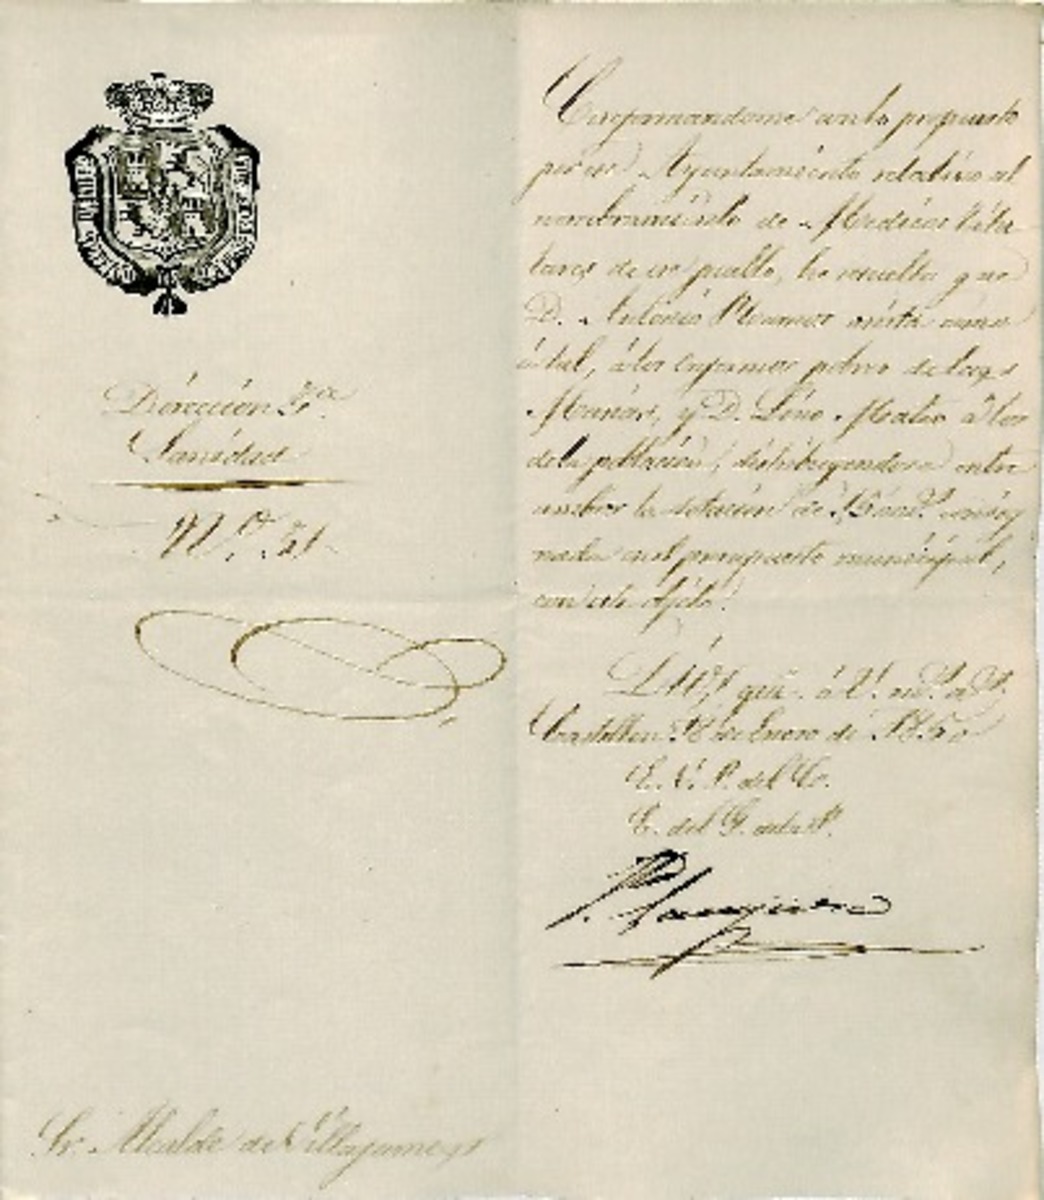 Dirección 3ª
Sanidad
Nº. 31
Conformandome con lo propuesto
por ese Ayuntamiento relativo al
nombramiento de Medicos titu
lares de ese pueblo, he resuelto que
D. Antonio asista como
á tal, á los enfermos pobres de las
y D. Lino Mateo á los
de la población, distribuyendose entre
ambos la dotación de consig
nada en el presupuesto municipal,
con este objeto.
á V.
Castellon 18 de Enero de
E. V. P. del C.
E. del G. de la P.
Sr. Alcalde de Villafamés